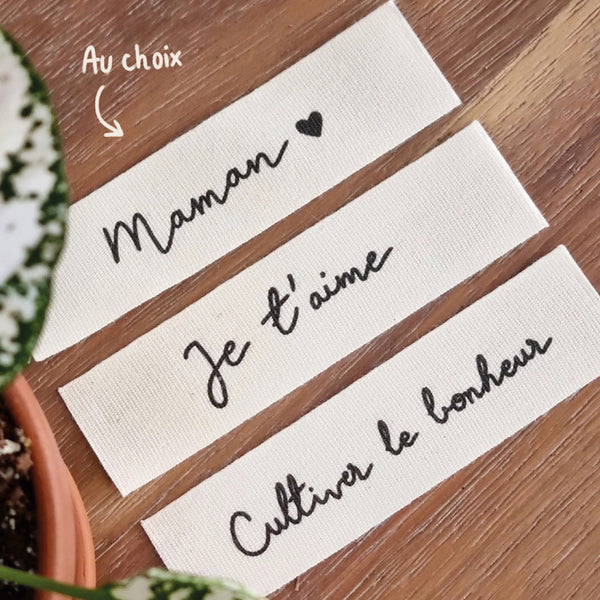 Au choix
Maman ♥
Je t'aime
Cultiver le bonheur